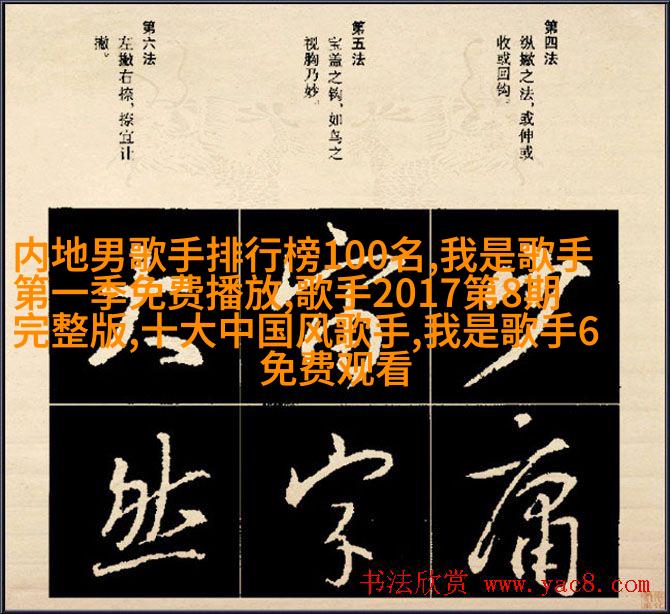 第四法
纵撇之法，或伸或
收或回钩。
第五法
宝盖之钩，如鸟之
视胸乃妙。
第六法
左撇右捺，捺宜让
撇。
内地男歌手排行榜100名,我是歌手
第一季免费播放,歌手2017第8期
完整版,十大中国风歌手,我是歌手6
免费观看
少
庸
字
然
书法欣赏 www.yac8.com